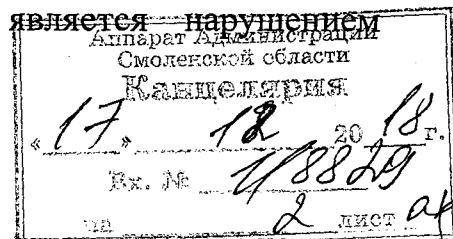 является нарушением
Аппарат Администрации
Смоленской области
Канцелярия
«17» 12 2018 г.
Вх. № 1/8829
на 2 лист